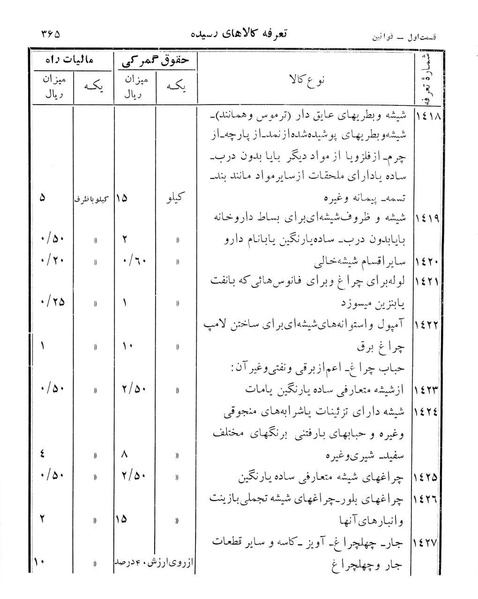 قسمت اول ـ قوانین
تعرفه کالاهای رسیده
۳۶۵
شمارهٔ تعرفه
نوع کالا
حقوق گمرکی
مالیات راه
یکه
میزان ریال
یکه
میزان ریال
۱۴۱۸ شیشه و بطریهای عایق دار (ترموس و همانند)ـ
شیشه و بطریهای پوشیده شده از نمد ـ از پارچه ـ از
چرم ـ از فلز و یا از مواد دیگر با یا بدون درب ـ
ساده یا دارای ملحقات از سایر مواد مانند بند ـ
تسمه ـ پیمانه و غیره کیلو ۱۵ کیلو باظرف ۵
۱۴۱۹ شیشه و ظروف شیشه‌ای برای بساط داروخانه
با یا بدون درب ـ ساده یا رنگین یا بانام دارو » ۲ » ۰/۵۰
۱۴۲۰ سایر اقسام شیشه خالی » ۰/۶۰ » ۰/۲۰
۱۴۲۱ لوله برای چراغ و برای فانوس هائی که بانفت
یا بنزین میسوزد » ۱ » ۰/۲۵
۱۴۲۲ آمپول و استوانه‌های شیشه‌ای برای ساختن لامپ
چراغ برق » ۱۰ » ۱
حباب چراغ ـ اعم از برقی و نفتی و غیر آن:
۱۴۲۳ از شیشه متعارفی ساده یا رنگین یا مات » ۲/۵۰ » ۰/۵۰
۱۴۲۴ شیشه دارای تزئینات یا شرابه‌های منجوقی
و غیره و حبابهای بارفتنی برنگهای مختلف
سفید ـ شیری و غیره » ۸ » ۴
۱۴۲۵ چراغهای شیشه متعارفی ساده یا رنگین » ۲/۵۰ » ۰/۵۰
۱۴۲۶ چراغهای بلور ـ چراغهای شیشه تجملی بازینت
و انبارهای آنها » ۱۵ » ۲
۱۴۲۷ جار ـ چهلچراغ ـ آویز ـ کاسه و سایر قطعات
جار و چهلچراغ از روی ارزش ۴۰ درصد » ۱۰